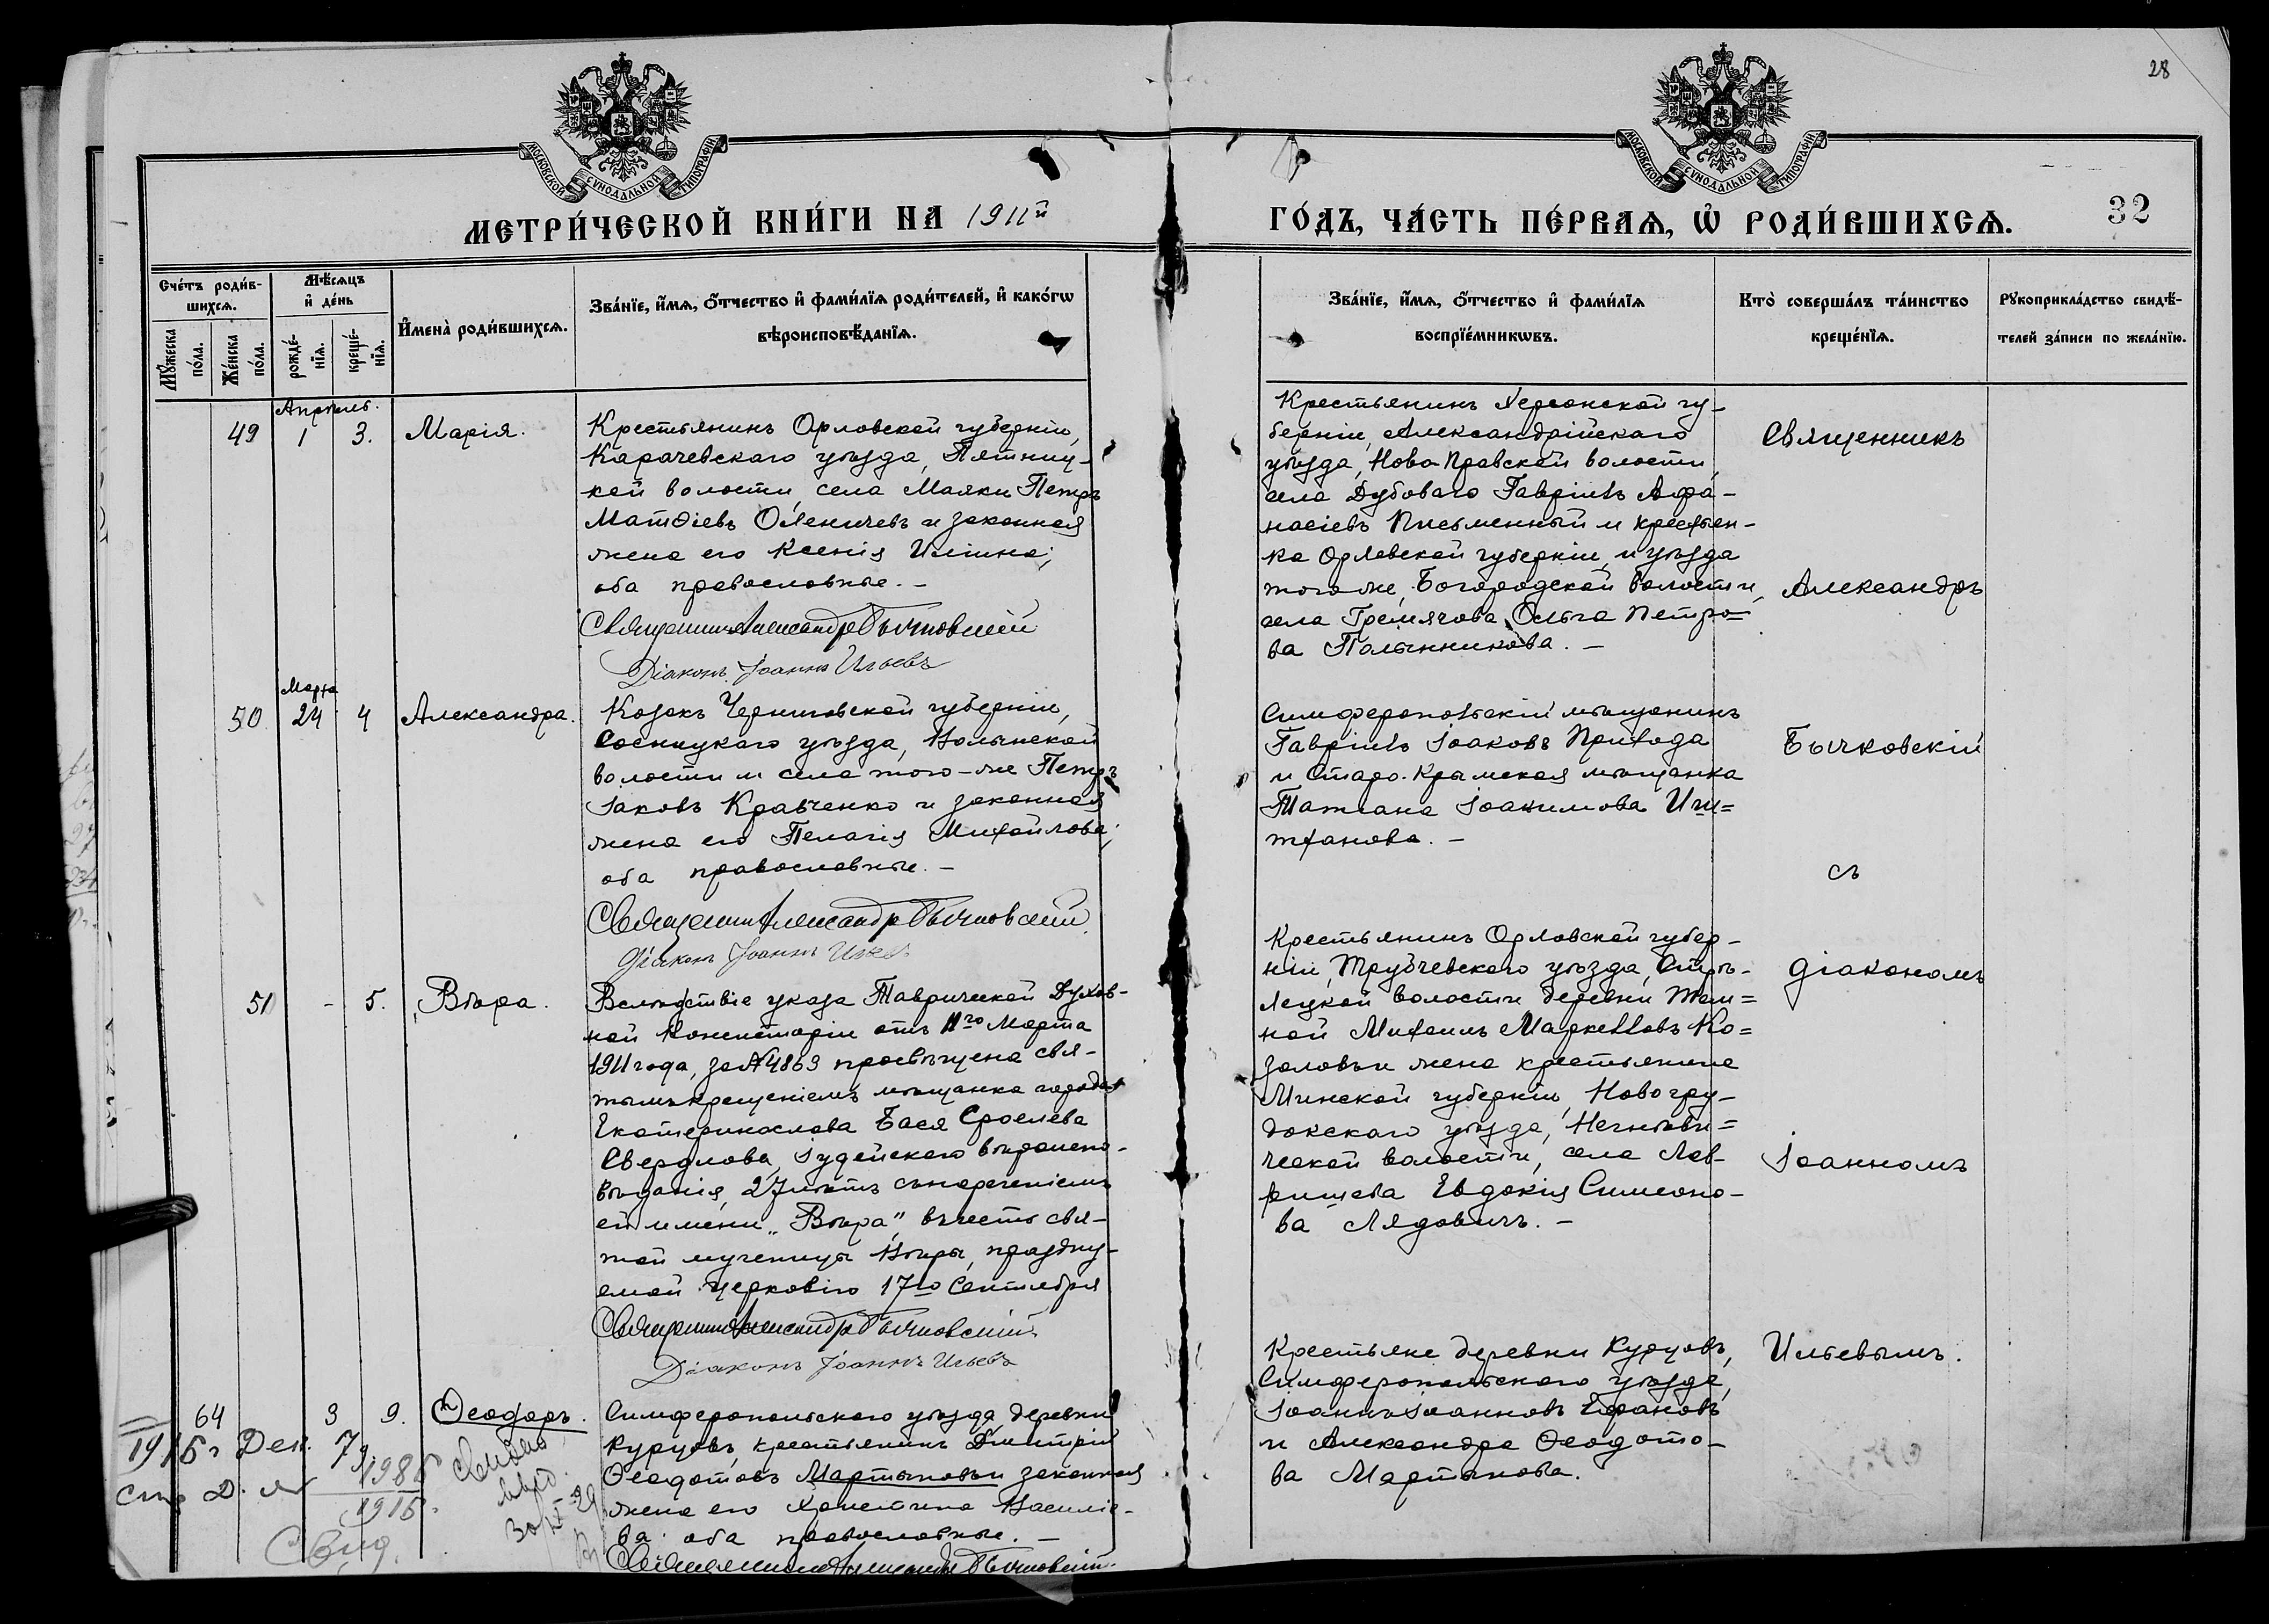 28
МОСКОВСКОЙ СѴНОДАЛЬНОЙ ТИПОГРАФІИ
МОСКОВСКОЙ СѴНОДАЛЬНОЙ ТИПОГРАФІИ
МЕТРИ́ЧЕСКОЙ КНИ́ГИ НА 1911й
ГО́ДЪ, ЧА́СТЬ ПЕ́РВАѦ, Ѡ҆ РОДИ́ВШИХСѦ.
32
Сче́тъ роди́в-
шихсѧ.
Мꙋ́жеска
по́ла.
Же́нска
по́ла.
Мѣ́сѧцъ
и҆ де́нь
рожде́-
нїѧ.
креще́-
нїѧ.
И҆мена̀ роди́вшихсѧ.
Зва́нїе, и҆́мѧ, ѻ҆́тчество и҆ фами́лїѧ роди́телей, и҆ како́гѡ
вѣроисповѣ́данїѧ.
Зва́нїе, и҆́мѧ, ѻ҆́тчество и҆ фами́лїѧ
воспрїе́мникѡвъ.
Кто̀ соверша́лъ та́инство
креще́нїѧ.
Рꙋкоприкла́дство свидѣ́-
телей за́писи по жела́нїю.
Апрѣль.
49 1 3. Марія.
Крестьянинъ Орловской губерніи,
Карачевскаго уѣзда, Пятниц-
кой волости, села Маяки Петръ
Матѳіевъ Оленичевъ и законная
жена его Ксенія Иліина;
оба православные. –
Священникъ Александръ Бычковскій
Діаконъ Іоаннъ Ильевъ
Крестьянинъ Херсонской гу-
берніи, Александрійскаго
уѣзда, Ново-Правской волости,
села Дубоваго Гавріилъ Афа-
насіевъ Письменный и крестьян-
ка Орловской губерніи, и уѣзда
того-же, Богородской волости,
села Гремячова Ольга Петро=
ва Палынникова. –
Марта
50 24 4 Александра.
Козакъ Черниговской губерніи,
Сосницкаго уѣзда, Волынской
волости и села того-же Петръ
Іаковъ Кравченко и законная
жена его Пелагія Михайлова;
оба православные. –
Священникъ Александръ Бычковскій
Діаконъ Іоаннъ Ильевъ
Симферопольскій мѣщанинъ
Гавріилъ Іоаковъ Приходa
и Старо-Крымская мѣщанка
Татіана Іоакимова
51 - 5. Вѣра.
Вслѣдствіе указа Таврической Духов-
ной Консисторіи отъ 11го Марта
1911 года, за № 4863 просвѣщена свя-
тымъ крещеніемъ мѣщанка города
Екатеринослава Бася Сроелева
Свердлова, Іудейскаго вѣроиспо-
вѣданія, 27 лѣтъ съ нареченіемъ
ей имени „Вѣра", въ честь свя-
той мученицы Вѣры, празднy-
емой церковію 17го Сентября
Священникъ Александръ Бычковскій
Діаконъ Іоаннъ Ильевъ
Крестьянинъ Орловской губер-
ніи, Трубчевскаго уѣзда, Стрѣ-
лецкой волости деревни Тем=
ной Михаилъ Маркелловъ Ко=
золовъ и жена крестьянина
Минской губерніи, Новогру-
докскаго уѣзда, Негнѣви=
ческой волости, села Лав-
ришева Евдокія Симеоно-
ва Лядовичъ. –
64 3 9. Ѳеодоръ.
Симферопольскаго уѣзда, деревни
Курцовъ, крестьянинъ Димитрій
Ѳеодотовъ Мартыновъ и законная
жена его Христина Василіе-
ва: оба православные. –
Священникъ Александръ Бычковскій.
Крестьяне деревни Курцовъ,
Симферопольскаго уѣзда,
Іоаннъ Іоанновъ Ефановъ
и Александра Ѳеодото-
ва Мартынова.
Священникъ
Александръ
Бычковскій
съ
діакономъ
Іоанномъ
Ильевымъ.
1915 г. Дек. 7
1915
Свид.